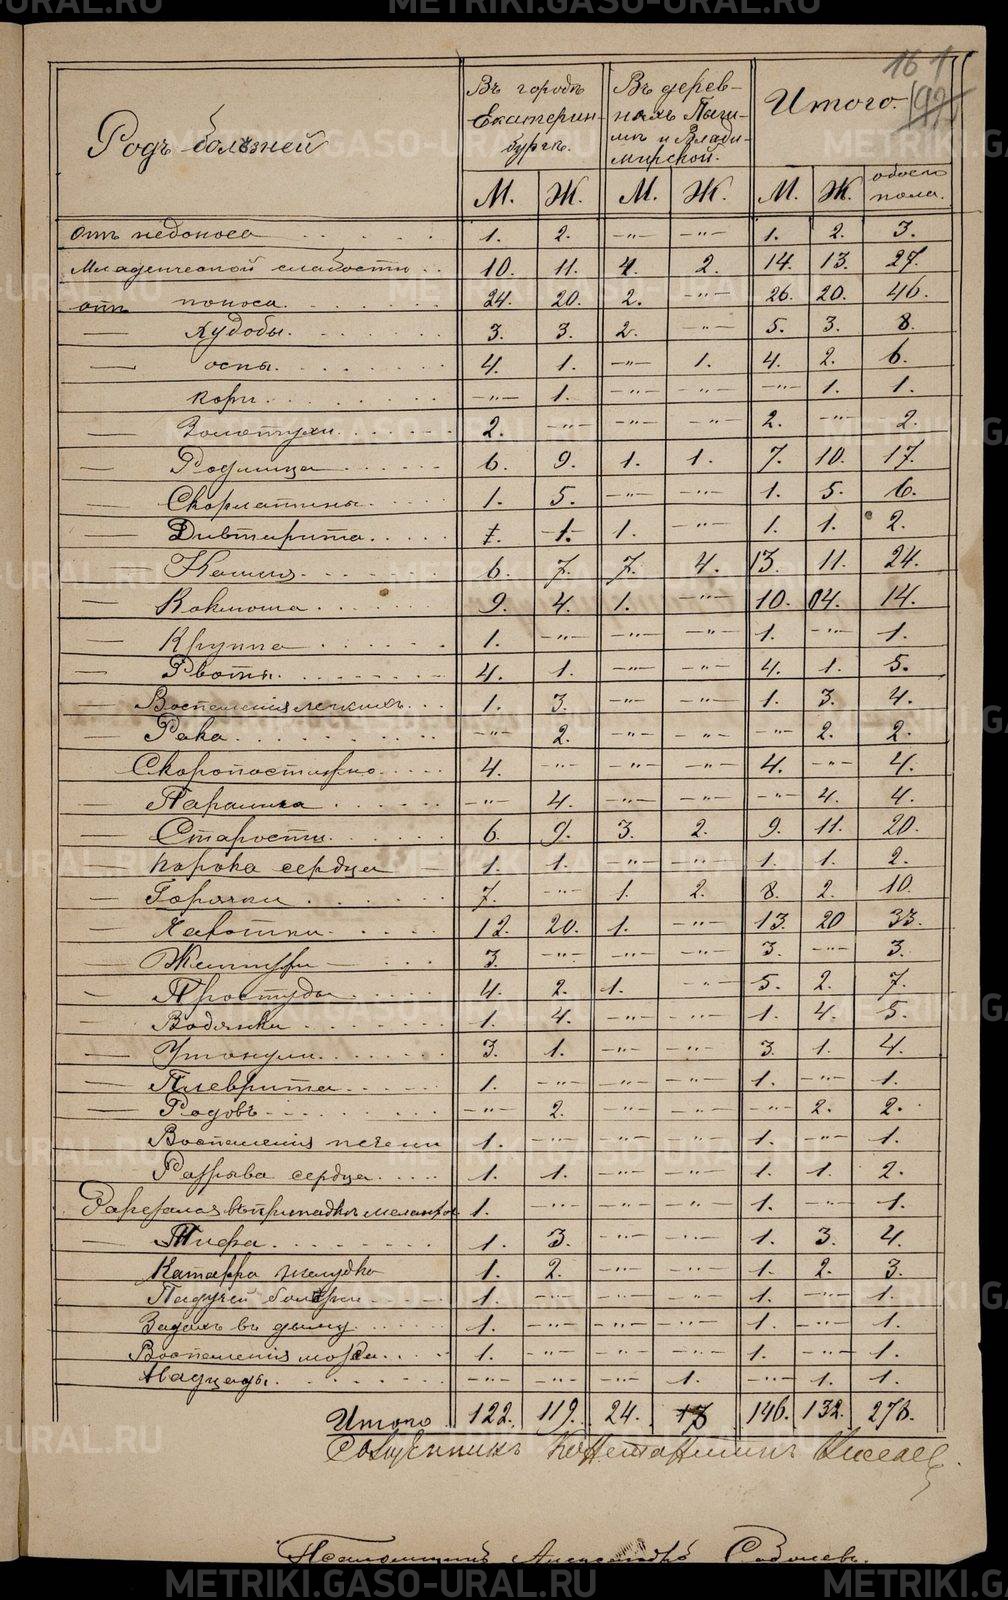 161
92
Родъ болѣзней
Въ городѣ Екатерин-бургѣ.
Въ дерев-няхъ Пыши-мѣ и Влади-мирской.
Итого.
М. Ж. М. Ж. М. Ж. обоего пола.
отъ недоноса 1. 2. -„- -„- 1. 2. 3.
Младенческой слабости 10. 11. 4. 2. 14. 13. 27.
отъ поноса 24. 20. 2. -„- 26. 20. 46.
Худобы. 3. 3. 2. -„- 5. 3. 8.
— оспы. 4. 1. -„- 1. 4. 2. 6.
кори. -„- 1. -„- -„- -„- 1. 1.
— Золотухи 2. -„- -„- -„- 2. -„- 2.
— Родимца 6. 9. 1. 1. 7. 10. 17.
— Скорлатины. 1. 5. -„- -„- 1. 5. 6.
— Дивтирита. 1. 1. -„- 1. 1. 2.
— Кашля 6. 7. 7. 4. 13. 11. 24.
— Коклюша 9. 4. 1. -„- 10. 04. 14.
— Круппа 1. -„- -„- -„- 1. -„- 1.
— Рвоты. 4. 1. -„- -„- 4. 1. 5.
— Воспаленія легкихъ. 1. 3. -„- -„- 1. 3. 4.
— Рака. -„- 2. -„- -„- -„- 2. 2.
Скоропостижно 4. -„- -„- -„- 4. -„- 4.
— Паралича -„- 4. -„- -„- -„- 4. 4.
— Старости. 6. 9. 3. 2. 9. 11. 20.
— Порока сердца 1. 1. -„- -„- 1. 1. 2.
— Горячки 7. -„- 1. 2. 8. 2. 10.
— Чахотки. 12. 20. 1. -„- 13. 20 33.
— 3. -„- -„- -„- 3. -„- 3.
— Простуды 4. 2. 1. -„- 5. 2. 7.
— Водянки 1. 4. -„- -„- 1. 4. 5.
— Утонули 3. 1. -„- -„- 3. 1. 4.
— Плеврита 1. -„- -„- -„- 1. -„- 1.
— Родовъ -„- 2. -„- -„- -„- 2. 2.
Воспаленія печени 1. -„- -„- -„- 1. -„- 1.
Разрыва сердца 1. 1. -„- -„- 1. 1. 2.
Зарезался въ припадкѣ меланхол 1. -„- -„- -„- 1. -„- 1.
— Тифа 1. 3. -„- -„- 1. 3. 4.
Катарра желудка 1. 2. -„- -„- 1. 2. 3.
Падучей болѣзни 1. -„- -„- -„- 1. -„- 1.
Задохъ въ дыму 1. -„- -„- -„- 1. -„- 1.
Воспаленія мозга 1. -„- -„- -„- 1. -„- 1.
-„- -„- -„- 1. -„- 1. 1.
Итого 122. 119. 24. 13 146. 132. 278.
Священникъ Константинъ Киселев
Псаломщикъ Александръ Соболевъ.
METRIKI.GASO-URAL.RU